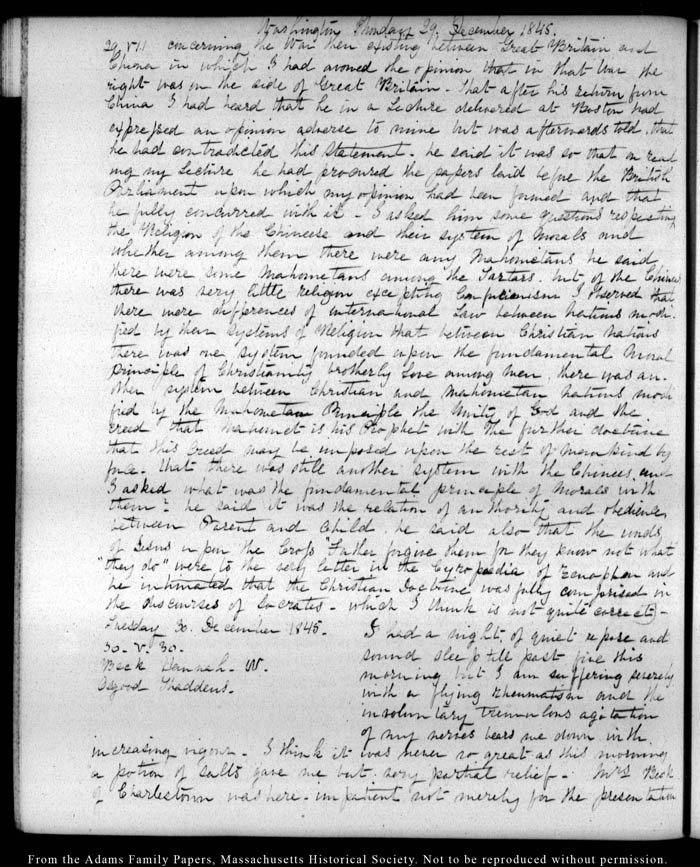 Washington Monday 29. December 1845.
29. VII concerning the War then existing between Great Britain and
China in which I had avowed the opinion, that in that War the
right was on the side of Great Britain. That after his return from
China I had heard that he in a Lecture delivered at Boston had
expressed an opinion adverse to mine but was afterwards told, that
he had contradicted this statement. he said it was so that on read
ing my Lecture he had procured the papers laid before the British
Parliament upon which my opinion had been formed and that
he fully concurred with it – I asked him some questions respecting
the Religion of the Chineese and their system of Morals and
whether among them there were any Mahometans he said
there were some Mahometans among the Tartars. but of the Chinese
there was very little religion excepting Confucianism I observed that
there were differences of international Law between Nations modi-
fied by their systems of Religion that between Christian nations
there was one system founded upon the fundamental moral
principle of Christianity brotherly Love among men there was an-
other system between Christian and Mahometan nations modi
fied by the Mahometan Principle the Unity of God and the
creed that Mahomet is his Prophet with the further doctrine
that this Creed may be imposed upon the rest of mankind by
force. that there was still another system with the Chinees and
I asked what was the fundamental principle of Morals with
them? he said it was the relation of authority and obedience
between Parent and Child. he said also that the words
of Jesus upon the Cross "Father forgive them for they know not what
"they do" were to the very letter in the Cyropaedia of Zenophon and
he intimated that the Christian Doctrine was fully comprised in
the discourses of Socrates – which I think is not quite correct –
Tuesday 30. December 1845.
30. V. 30.
Beck Hannah. W.
Osgood Thaddeus.
I had a night, of quiet repose and
sound sleep till past five this
morning but I am suffering severely
with a flying rheumatism and the
involuntary tremulous agitation
of my nerves bears me down with
increasing vigour – I think it was never so great as this morning
a potion of salts gave me but very partial relief – Mrs Beck
of Charlestown was here – impatient not merely for the presentation
From the Adams Family Papers, Massachusetts Historical Society. Not to be reproduced without permission.